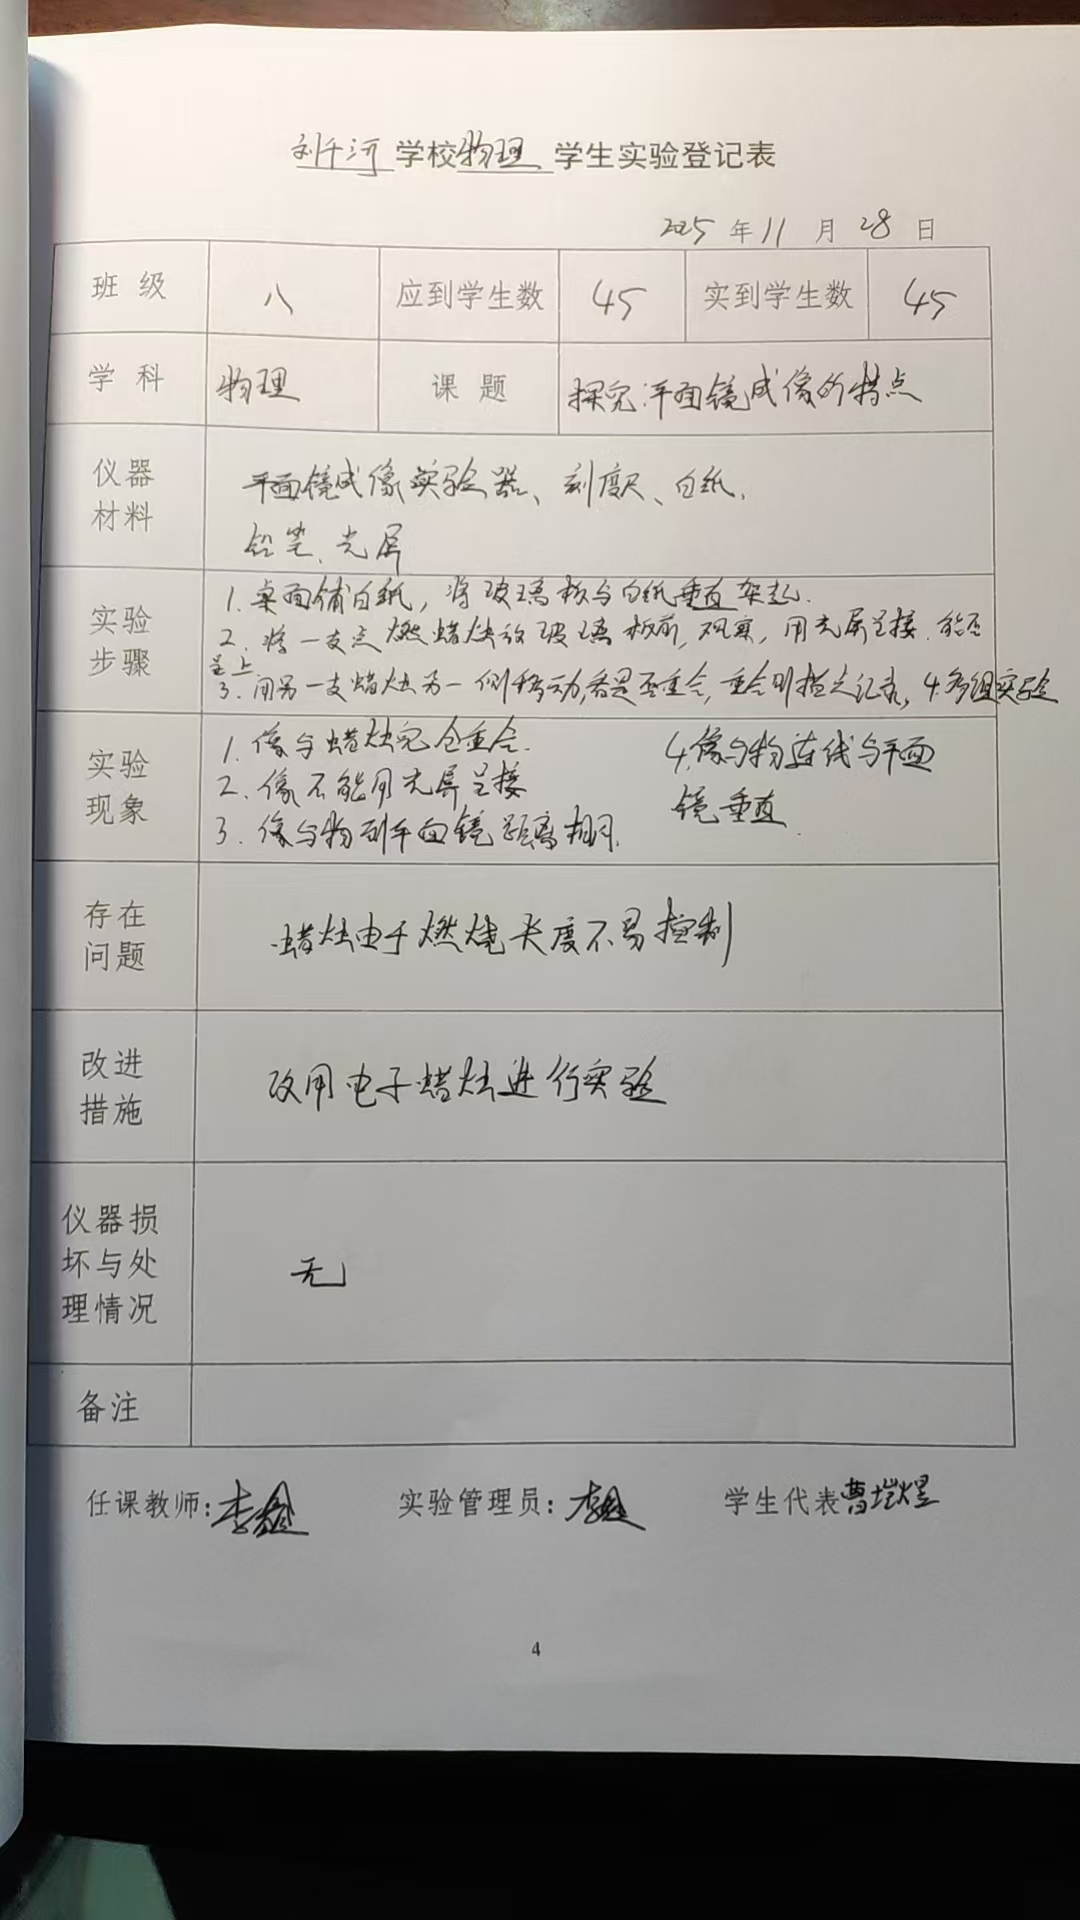 刘千河 学校 物理 学生实验登记表
2025 年 11 月 28 日
班 级 八 应到学生数 45 实到学生数 45
学 科 物理 课 题 探究平面镜成像的特点
仪器 材料
平面镜成像实验器、刻度尺、白纸、
铅笔、光屏
实验 步骤
1. 桌面铺白纸，将玻璃板与白纸垂直架起.
2. 将一支点燃蜡烛放玻璃板前，观察，用光屏呈接，能否
呈上
3. 用另一支蜡烛另一侧移动,看是否重合,重合则指定记录, 4.多组实验
实验 现象
1. 像与蜡烛完全重合.
2. 像不能用光屏呈接
3. 像与物到平面镜距离相同.
4.像与物连线与平面
镜垂直
存在 问题
蜡烛由于燃烧长度不易控制
改进 措施
改用电子蜡烛进行实验
仪器损 坏与处 理情况
无
备注
任课教师: 李 实验管理员: 李 学生代表 曹垲煜
4